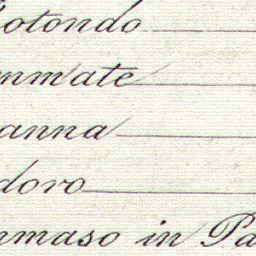 otondo
mmate
anna
doro
maso in Pa